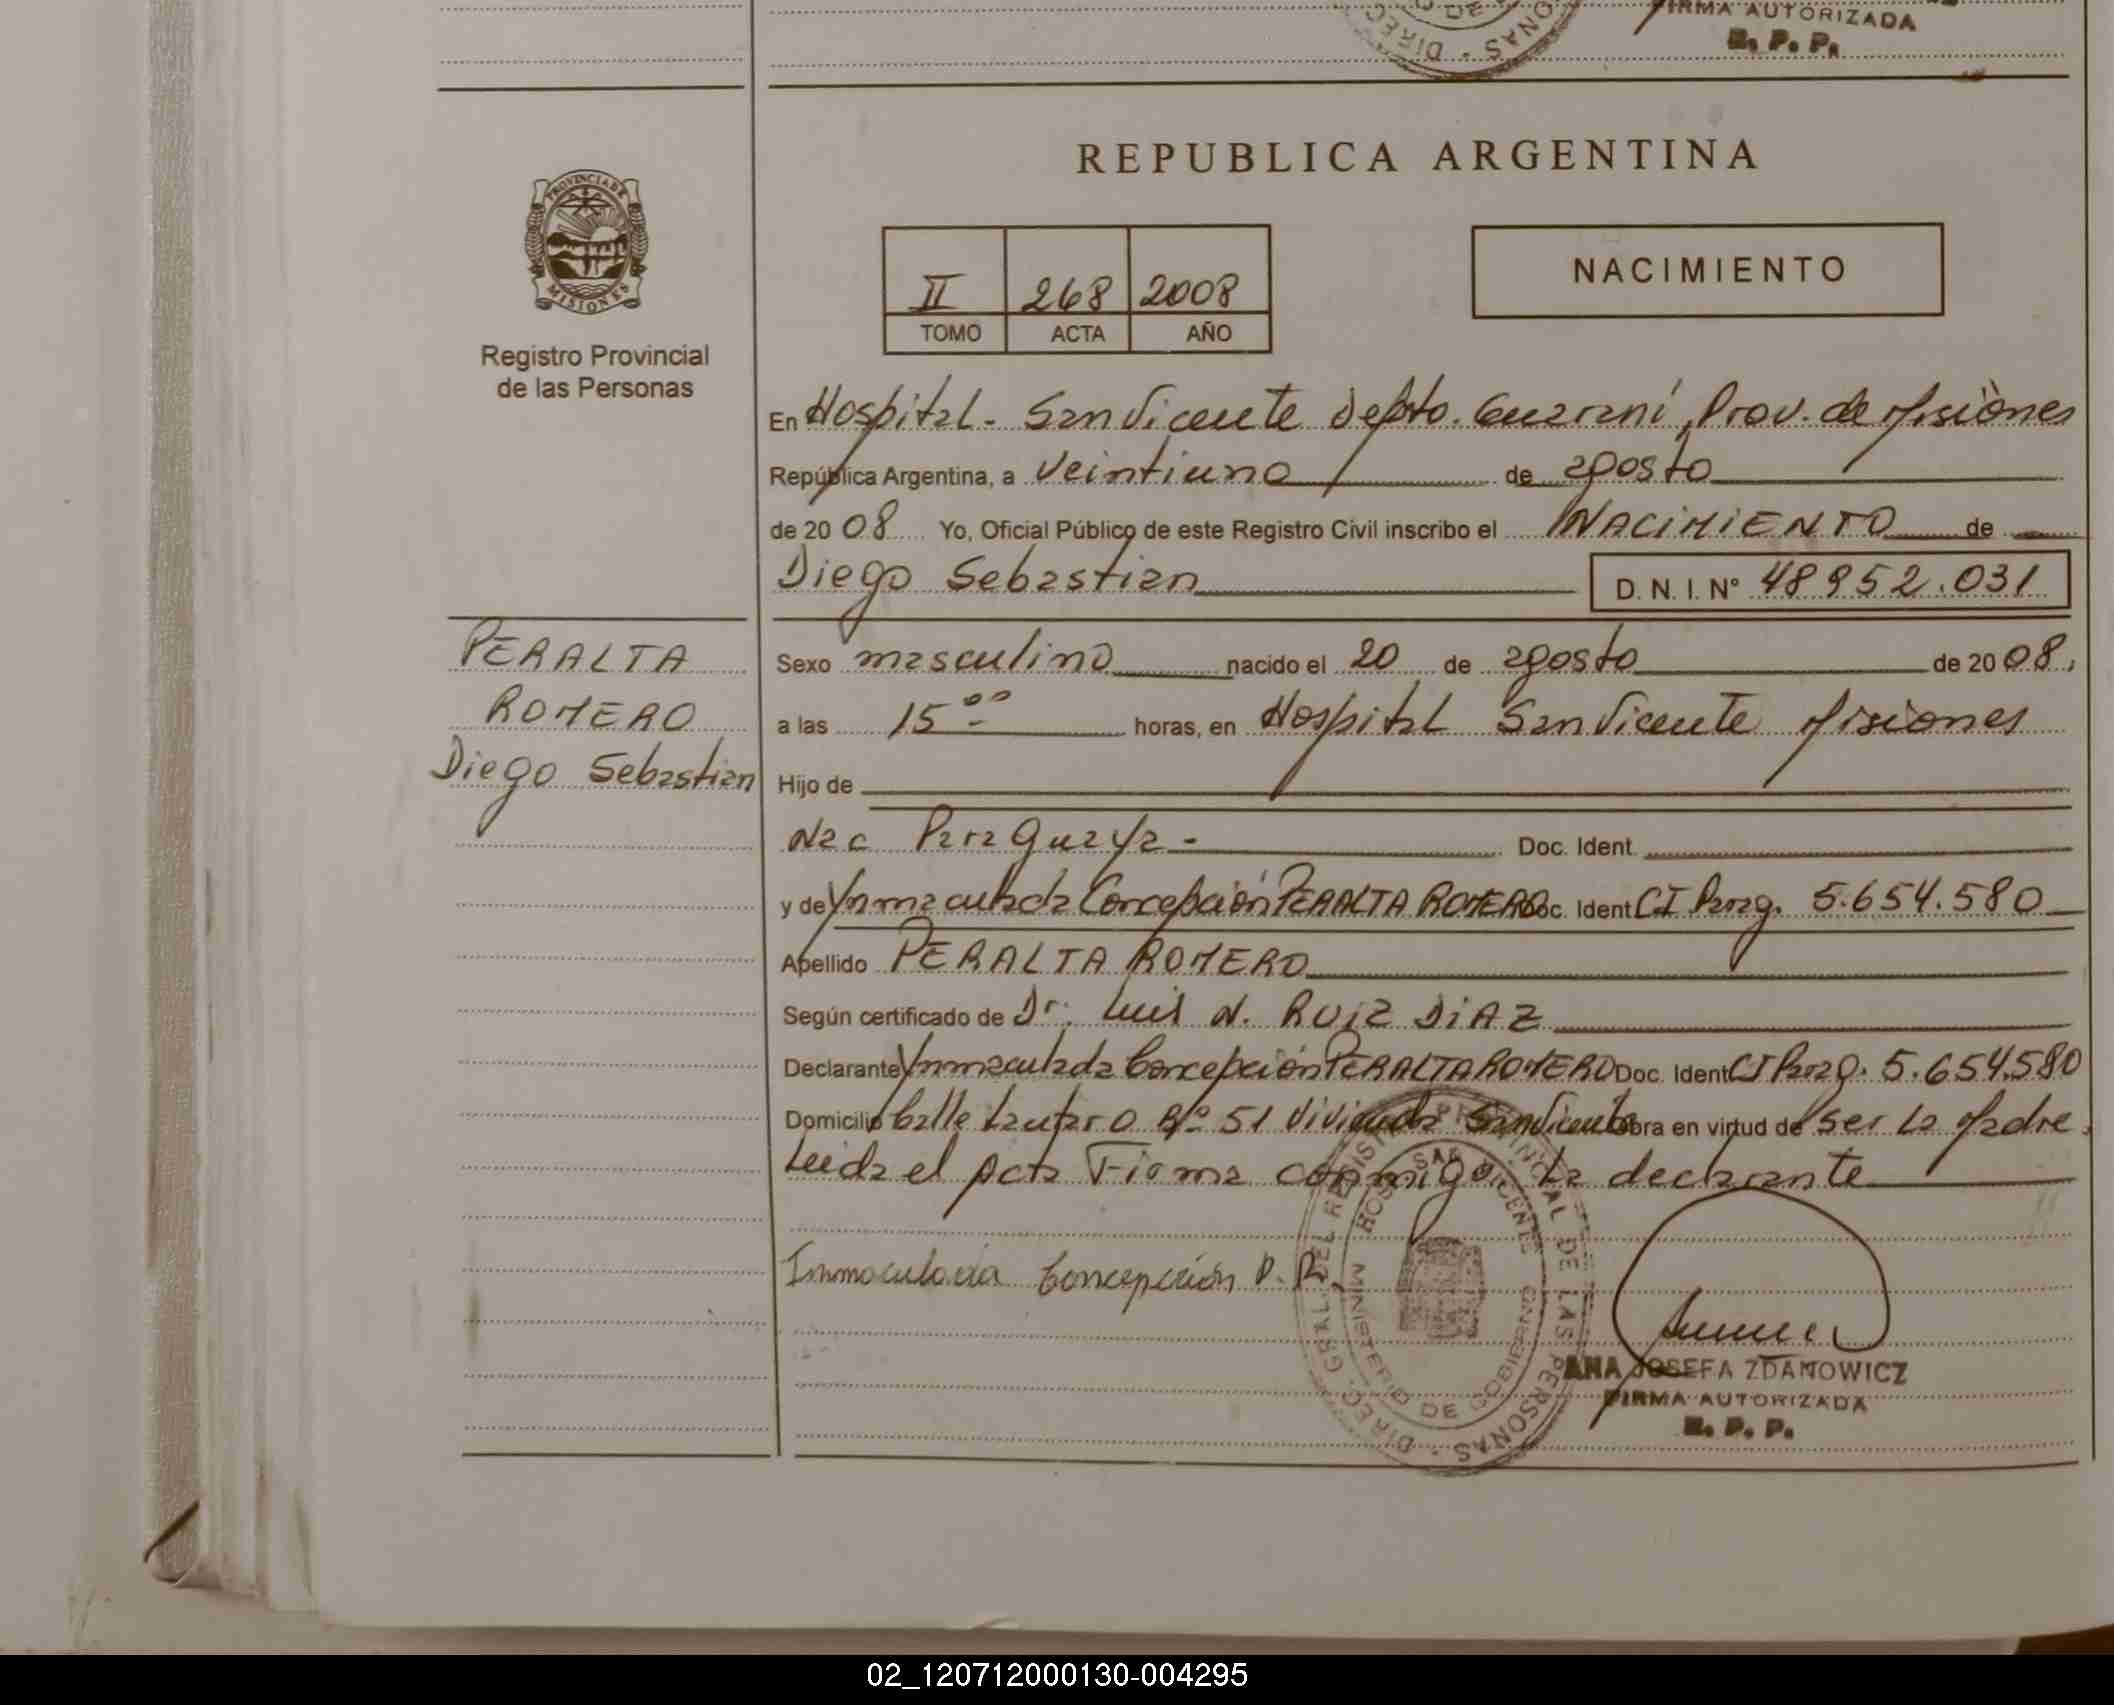 FIRMA AUTORIZADA
R. P. P.
REPUBLICA ARGENTINA
PROVINCIA DE
MISIONES
Registro Provincial
de las Personas
II 268 2008
TOMO ACTA AÑO
NACIMIENTO
En Hospital - San Vicente Depto. Guaraní, Prov. de Misiones
República Argentina, a veintiuno de agosto
de 2008 Yo, Oficial Público de este Registro Civil inscribo el NACIMIENTO de
Diego Sebastian D. N. I. N° 48952.031
PERALTA
ROMERO
Diego Sebastian
Sexo masculino nacido el 20 de agosto de 2008,
a las 15 00 horas, en Hospital San Vicente Misiones
Hijo de
Nac Paraguaya - Doc. Ident.
y de Ynmaculada Concepción PERALTA ROMERO Doc. Ident CI Parag. 5.654.580
Apellido PERALTA ROMERO
Según certificado de Dr. Luis N. RUIZ DIAZ
Declarante Ynmaculada Concepción PERALTA ROMERO Doc. Ident CI Parag. 5.654.580
Domicilio Calle Lautaro Nº 51 Vivienda San Vicente Obra en virtud de ser la Madre.
Leida el acta Firma conmigo la declarante
Inmaculada Concepción P. R,
DIREC. GRAL. DEL REGISTRO PROVINCIAL DE LAS PERSONAS
HOSP. SAN VICENTE
MINISTERIO DE GOBIERNO
ANA JOSEFA ZDANOWICZ
FIRMA AUTORIZADA
R. P. P.
02_120712000130-004295